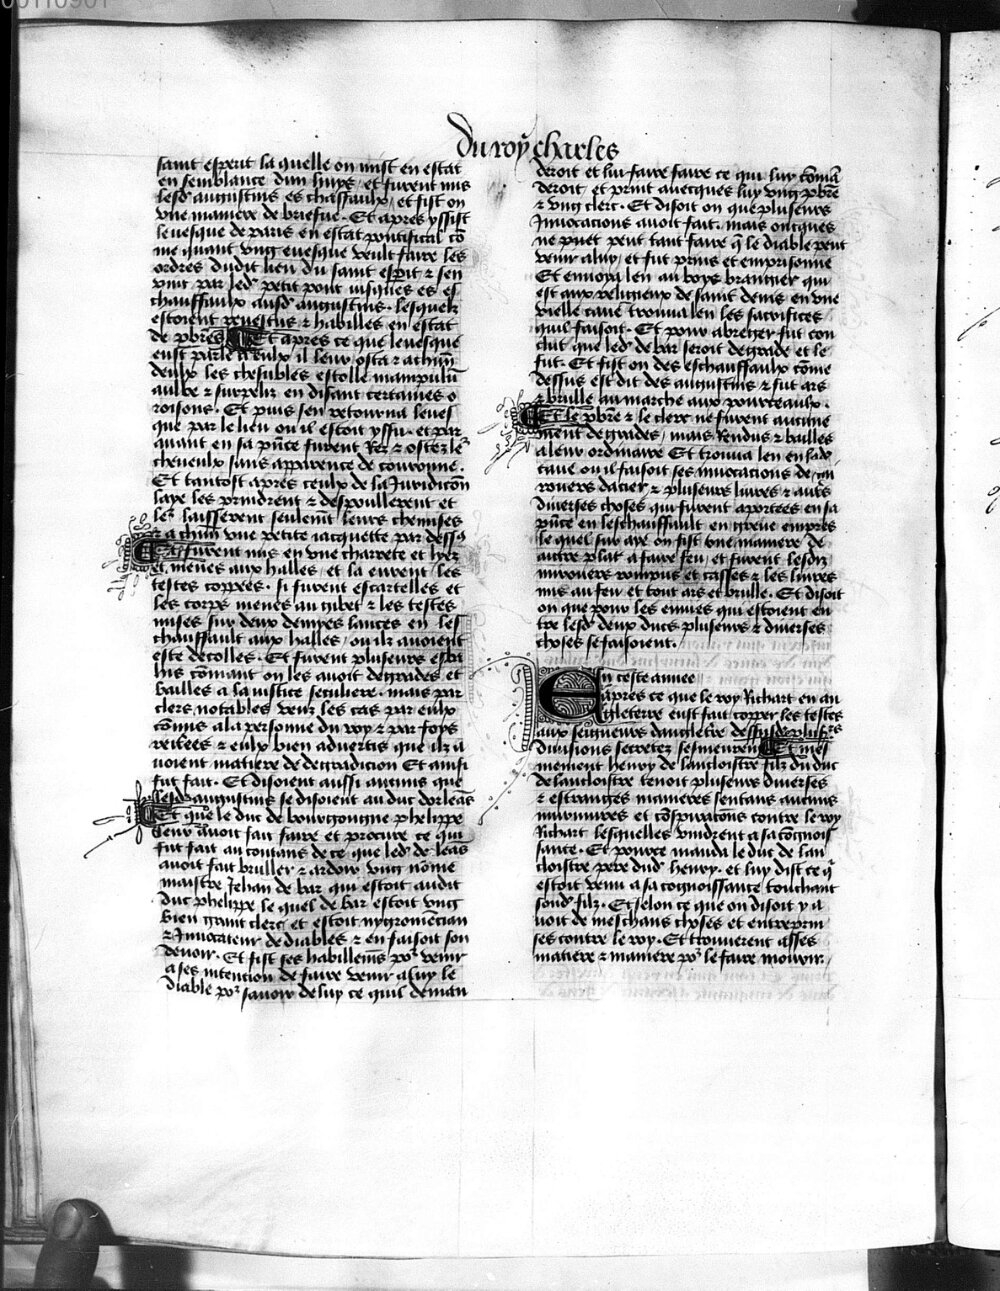 00110901
du roy charles
saint esperit la quelle on mist en estat
en semblance dun huys / et furent mis
lesd augustins es chaffaulx / et fist on
vne maniere de briefue . Et apres yssist
leuesque de paris en estat pontifical cō
me quant vng euesque veult faire les
ordres dudit lieu du saint espit ⁊ sen
vint par led petit pont iusques es es
chauffaulx ausd augustins . lesquelz
estoient reuestus ⁊ habilles en estat
de pbres Et apres ce que leuesque
eust parle a eulx il leur osta ⁊ a chūn
deulx les chesubles estolle manipulū
aulbe ⁊ surpeliz en disant certaines o
roisons . Et puis sen retourna leues
que par le lieu ou il estoit yssu . et par
auant en sa pn̄ce furent Rez ⁊ ostez le
cheueulx sans apparence de couronne .
Et tantost apres ceulx de la Juridicōn
laye les prindrent ⁊ despoullerent et
le laisserent seulemt leurs chemises
⁊ a chūn vne petite iacquette par dess
Et furent mis en vne charrete et lyez
et menes aux halles / et la eurent les
testes coppees . si furent escartelles et
les corps menes au gibet ⁊ les testes
mises sur deux demyes lances en les
chauffault aux halles / ou ilz auoient
este decolles . Et furent plusieurs esba
his cōmant on les auoit degrades et
bailles a la iustice seculiere . mais par
clers notables veuz les cas par eulx
cōmis a la personne du roy ⁊ par foys
reitees ⁊ eulx bien aduertis que ilz a
uoient matiere de degradicion Et ainsi
fut fait . Et disoient aussi aucuns que
lesd augustins se disoient au duc dorleās
Et que le duc de bourgongne phelippe
leur auoit fait faire et procure ce qui
fut fait au contans de ce que led de leās
auoit fait bruller ⁊ ardoir vng nōme
maistre Jehan de bar qui estoit audit
duc phelippe le quel de bar estoit vng
bien grant clerc / et estoit nygromēcian
⁊ Jnuocateur de diables ⁊ en faisoit son
deuoir . Et fist ses habillemens po venir
a ses intention de faire venir a luy le
diable po sauoir de luy ce quil deman
deroit et lui faire faire ce qui luy cōmā
deroit et print auecques luy vng pbre
⁊ vng clerc . Et disoit on que plusieurs
Jnuocacions auoit fait . mais oncques
ne puet peut tant faire q le diable peut
venir a luy / et fut prins et emprisonne
Et enuoya len au boys brangier qui
est aux religieux de saint denis en vne
vielle caue trouua len les sacrifices
quil faisoit . Et pour abreger fut con
clut que led de bar seroit degrade et le
fut . Et fist on des eschauffaulx cōme
dessus est dit des augustins ⁊ fut ars
⁊ brulle au marche aux pourceaulx .
Et le pbre ⁊ le clerc ne furent aucune
ment degrades / mais Rendus ⁊ bailles
a leur ordinaire Et trouua len en lad
caue ou il faisoit ses inuocacions de mi
rouers dacier ⁊ plusieurs liures ⁊ aut̄s
diuerses choses qui furent aportees en sa
pn̄ce en leschauffault en greue empres
le quel sur aye on fist vne maniere de
autre plat a faire feu / et furent lesdiz
mirouers rompus et casses ⁊ les liures
mis au feu et tout ars et brulle . Et disoit
on que pour les enuies qui estoient en
tre lesd deux ducs plusieurs ⁊ diuerses
choses se faisoient .
En ceste annee
apres ce que le roy Richart en an
gleterre eust fait copper les testes
aux seigneurs dangletre dessusd plus
diuisions secretez sesmeurent Et mes
mement henry de lancloistre filz du duc
de lancloistre tenoit plusieurs diuerses
⁊ estranges manieres sentans aucuns
murmures et cōspiracōns contre le roy
Richart lesquelles vindrent a sa cōgnois
sance . Et pource manda le duc de lan
cloistre pere dud henry . et luy dist ce q
estoit venu a sa cognoissance touchant
sond filz . Et selon ce que on disoit y a
uoit de meschans choses et entreprin
ses contre le roy . Et trouuerent asses
matiere ⁊ maniere po le faire mourir .